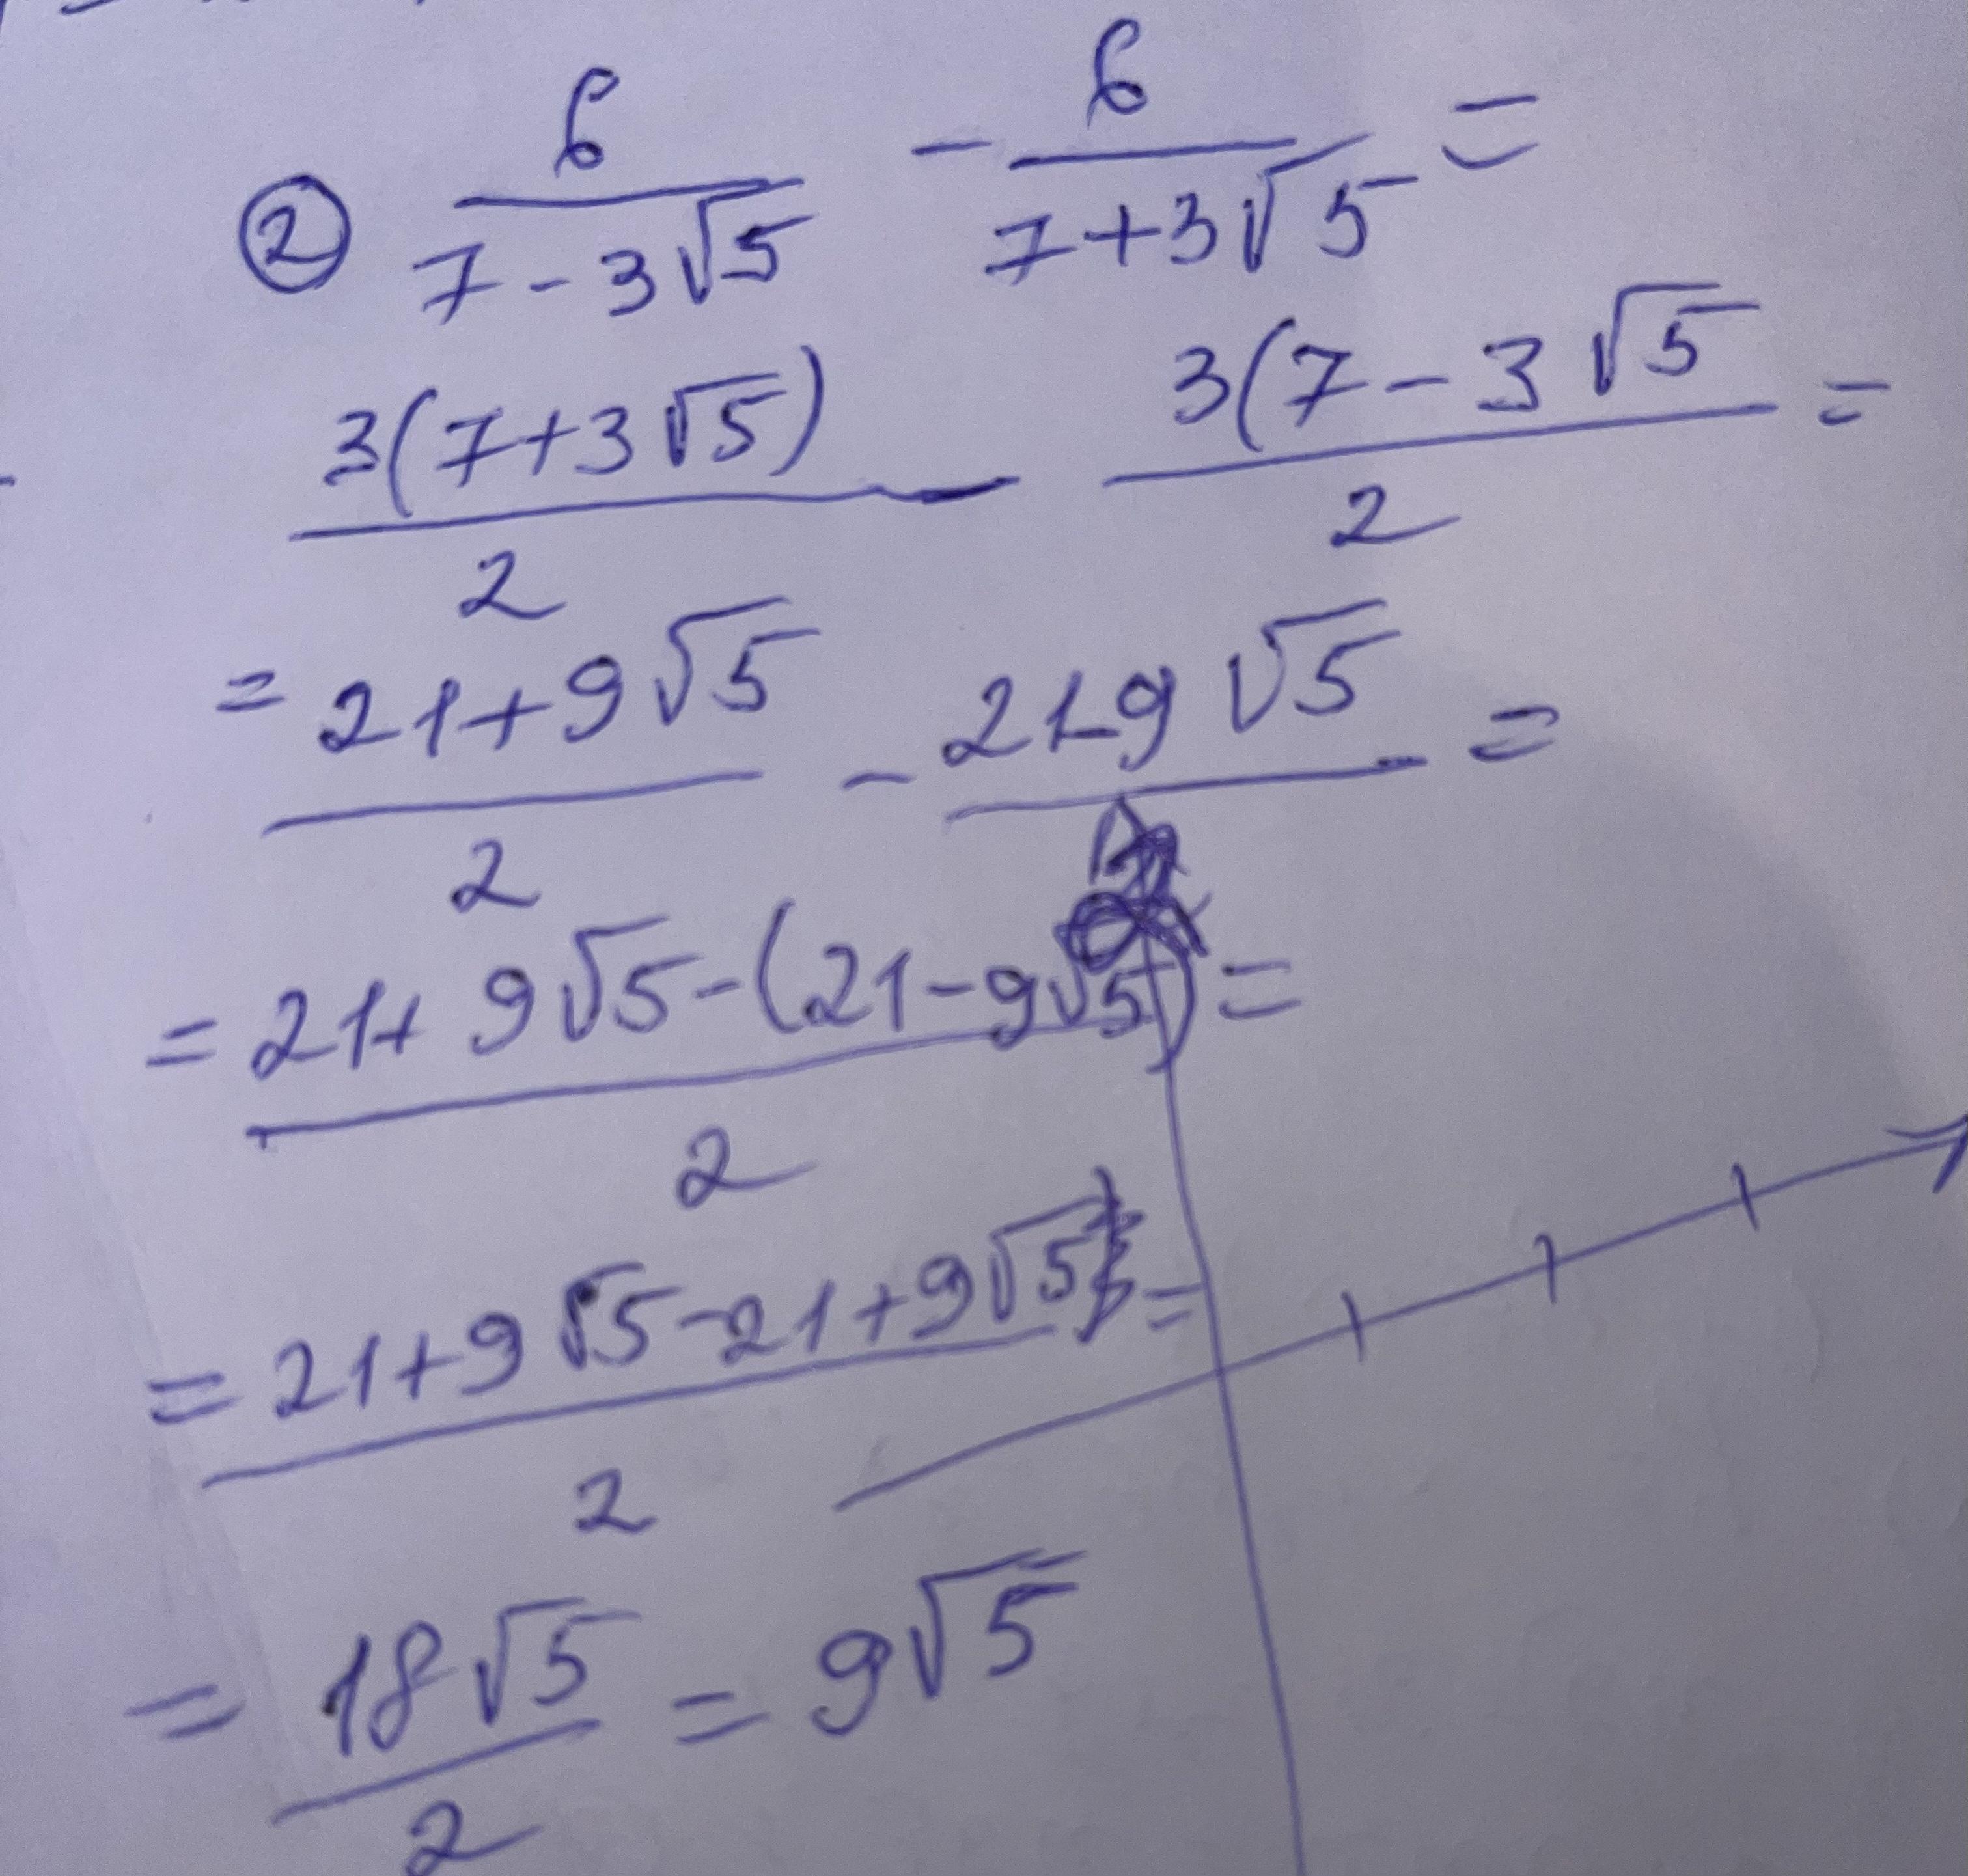 ② 6/(7-3√5) - 6/(7+3√5) =
3(7+3√5)/2 - 3(7-3√5/2 =
= 21+9√5/2 - 21-9√5/2 =
= 21+9√5-(21-9√5)/2 =
= 21+9√5-21+9√5/2 =
= 18√5/2 = 9√5